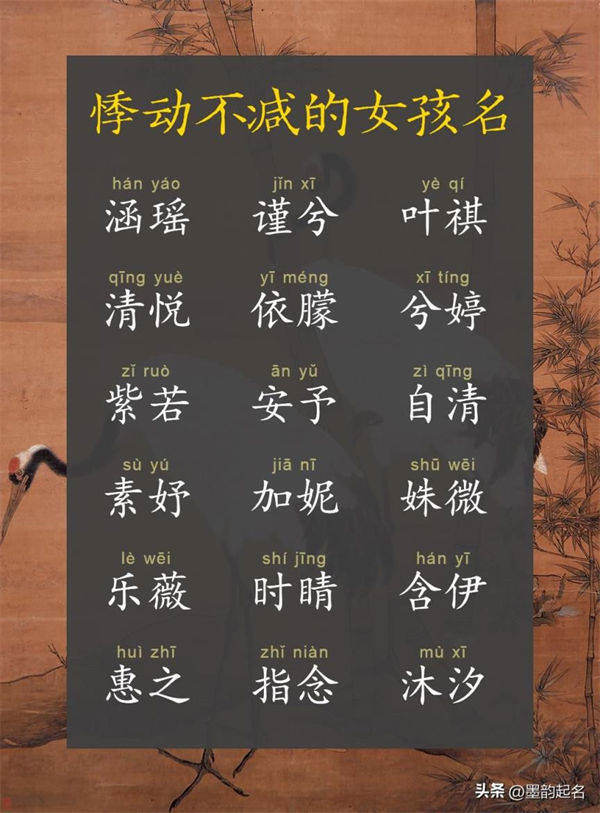 悸动不减的女孩名
hán yáo jǐn xī yè qí
涵瑶 谨兮 叶祺
qīng yuè yī méng xī tíng
清悦 依朦 兮婷
zǐ ruò ān yǔ zì qīng
紫若 安予 自清
sù yú jiā nī shū wēi
素妤 加妮 姝微
lè wēi shí jīng hán yī
乐薇 时晴 含伊
huì zhī zhǐ niàn mù xī
惠之 指念 沐汐
头条 @墨韵起名